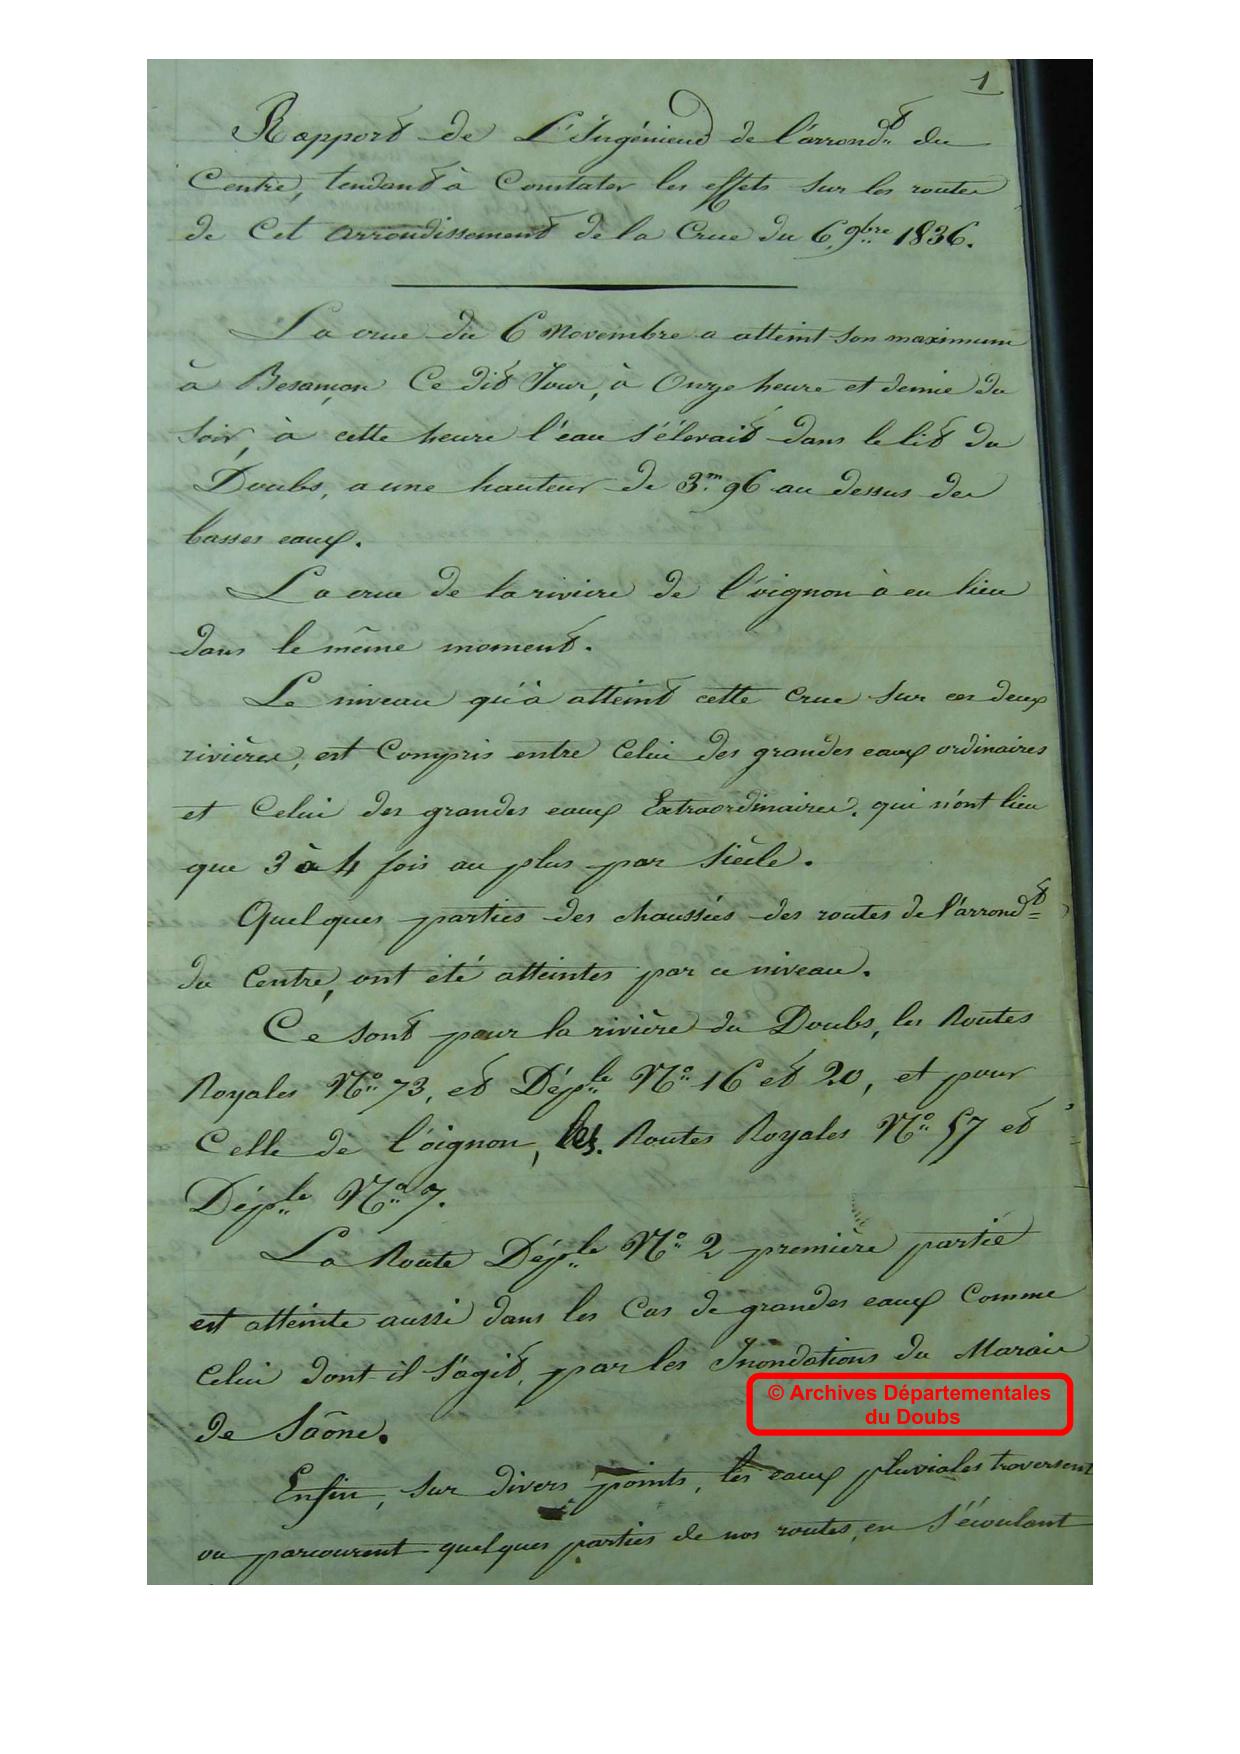 1
Rapport de L'Ingénieur de l'arrondt. du
Centre, tendant à Constater les effets sur les routes
de Cet arrondissement de la Crue du 6 9bre 1836.
La crue du 6 novembre a atteint son maximum
à Besançon Ce dit Jour, à Onze heure et demie du
soir, à cette heure l'eau s'élevait dans le lit du
Doubs, a une hauteur de 3m.96 au dessus des
basses eaux.
La crue de la riviere de l'oignon à eu lieu
dans le même moment.
Le niveau qu'à atteint cette Crue sur ces deux
rivières, est Compris entre Celui des grandes eaux ordinaires
et Celui des grandes eaux Extraordinaires, qui n'ont lieu
que 3 à 4 fois au plus par Siècle.
Quelques parties des chaussées des routes de l'arrondt.
du Centre, ont été atteintes par ce niveau.
Ce sont pour la rivière du Doubs, les Routes
Royales No. 73, et Déple. No. 16 et 20, et pour
Celle de l'oignon, les Routes Royales No. 57 et
Déple. No. 7.
La Route Déple. No. 2 première partie
est atteinte aussi dans les Cas de grandes eaux Comme
Celui dont il s'agit, par les Inondations du Marais
de Saône.
© Archives Départementales
du Doubs
Enfin, sur divers points, les eaux pluviales traversent
ou parcourent quelques parties de nos routes, en s'écoulant